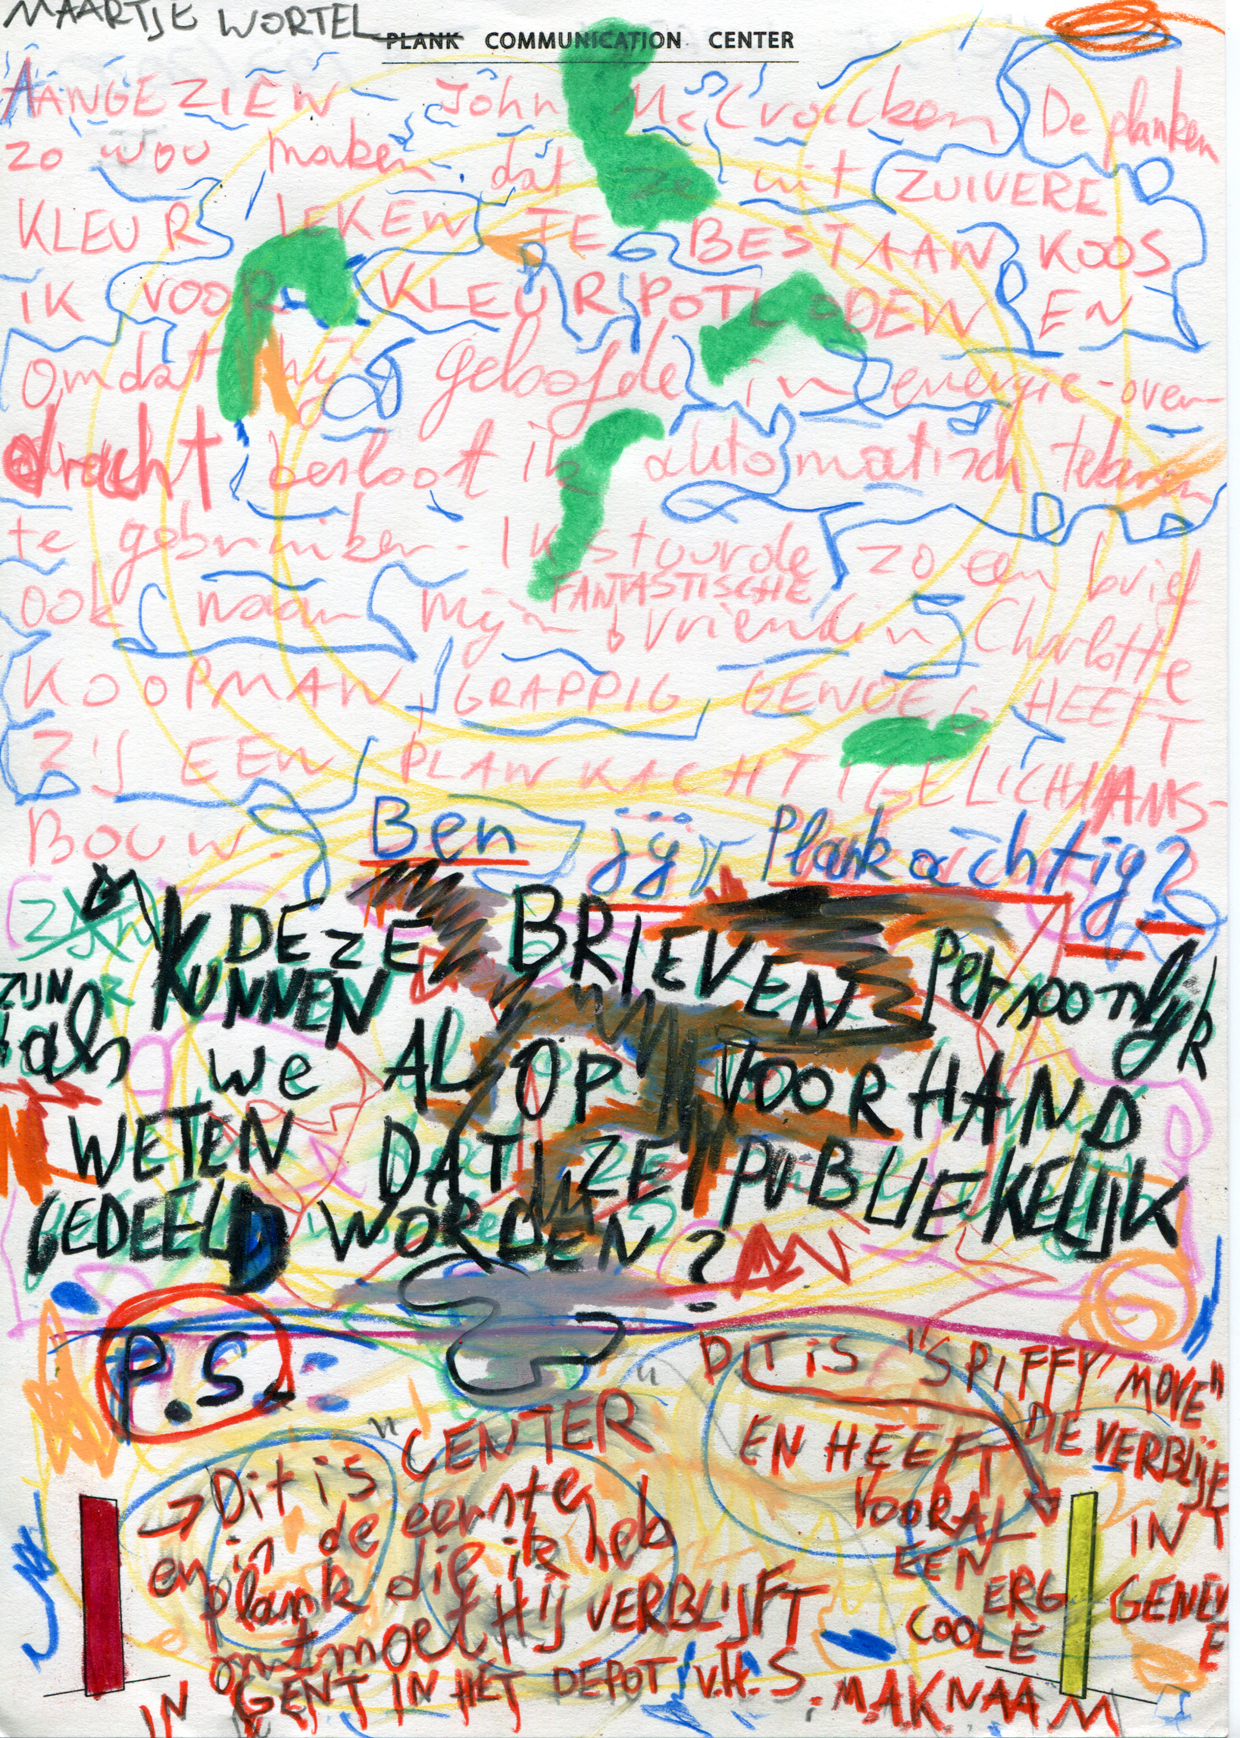 MAARTJE WORTEL
PLANK COMMUNICATION CENTER
AANGEZIEN John McCracken De planken
zo wou maken dat ze uit ZUIVERE
KLEUR LEKEN TE BESTAAN KOOS
IK VOOR KLEURPOTLODEN EN
omdat hij geloofde in energie-over-
dracht besloot ik automatisch tekenen
te gebruiken. Ik stuurde zo een brief
FANTASTISCHE
ook naar mijn vriendin Charlotte
KOOPMAN, GRAPPIG GENOEG HEEFT
ZIJ EEN PLANKACHTIGE LICHAAMS-
BOUW.
Ben jij Plankachtig?
KUNNEN DEZE BRIEVEN Persoonlijk
ZIJN
als we AL OP VOORHAND
WETEN DAT ZE PUBLIEKELIJK
GEDEELD WORDEN?
P.S.
→ Dit is "CENTER"
en is de eerste
plank die ik heb
ontmoet HIJ VERBLIJFT
IN GENT IN HET DEPOT V.H. S.M.A.K
DIT IS "SPIFFY MOVE"
DIE VERBLIJFT
IN GENEVE
EN HEEFT
VOORAL
EEN
ERG
COOLE
NAAM